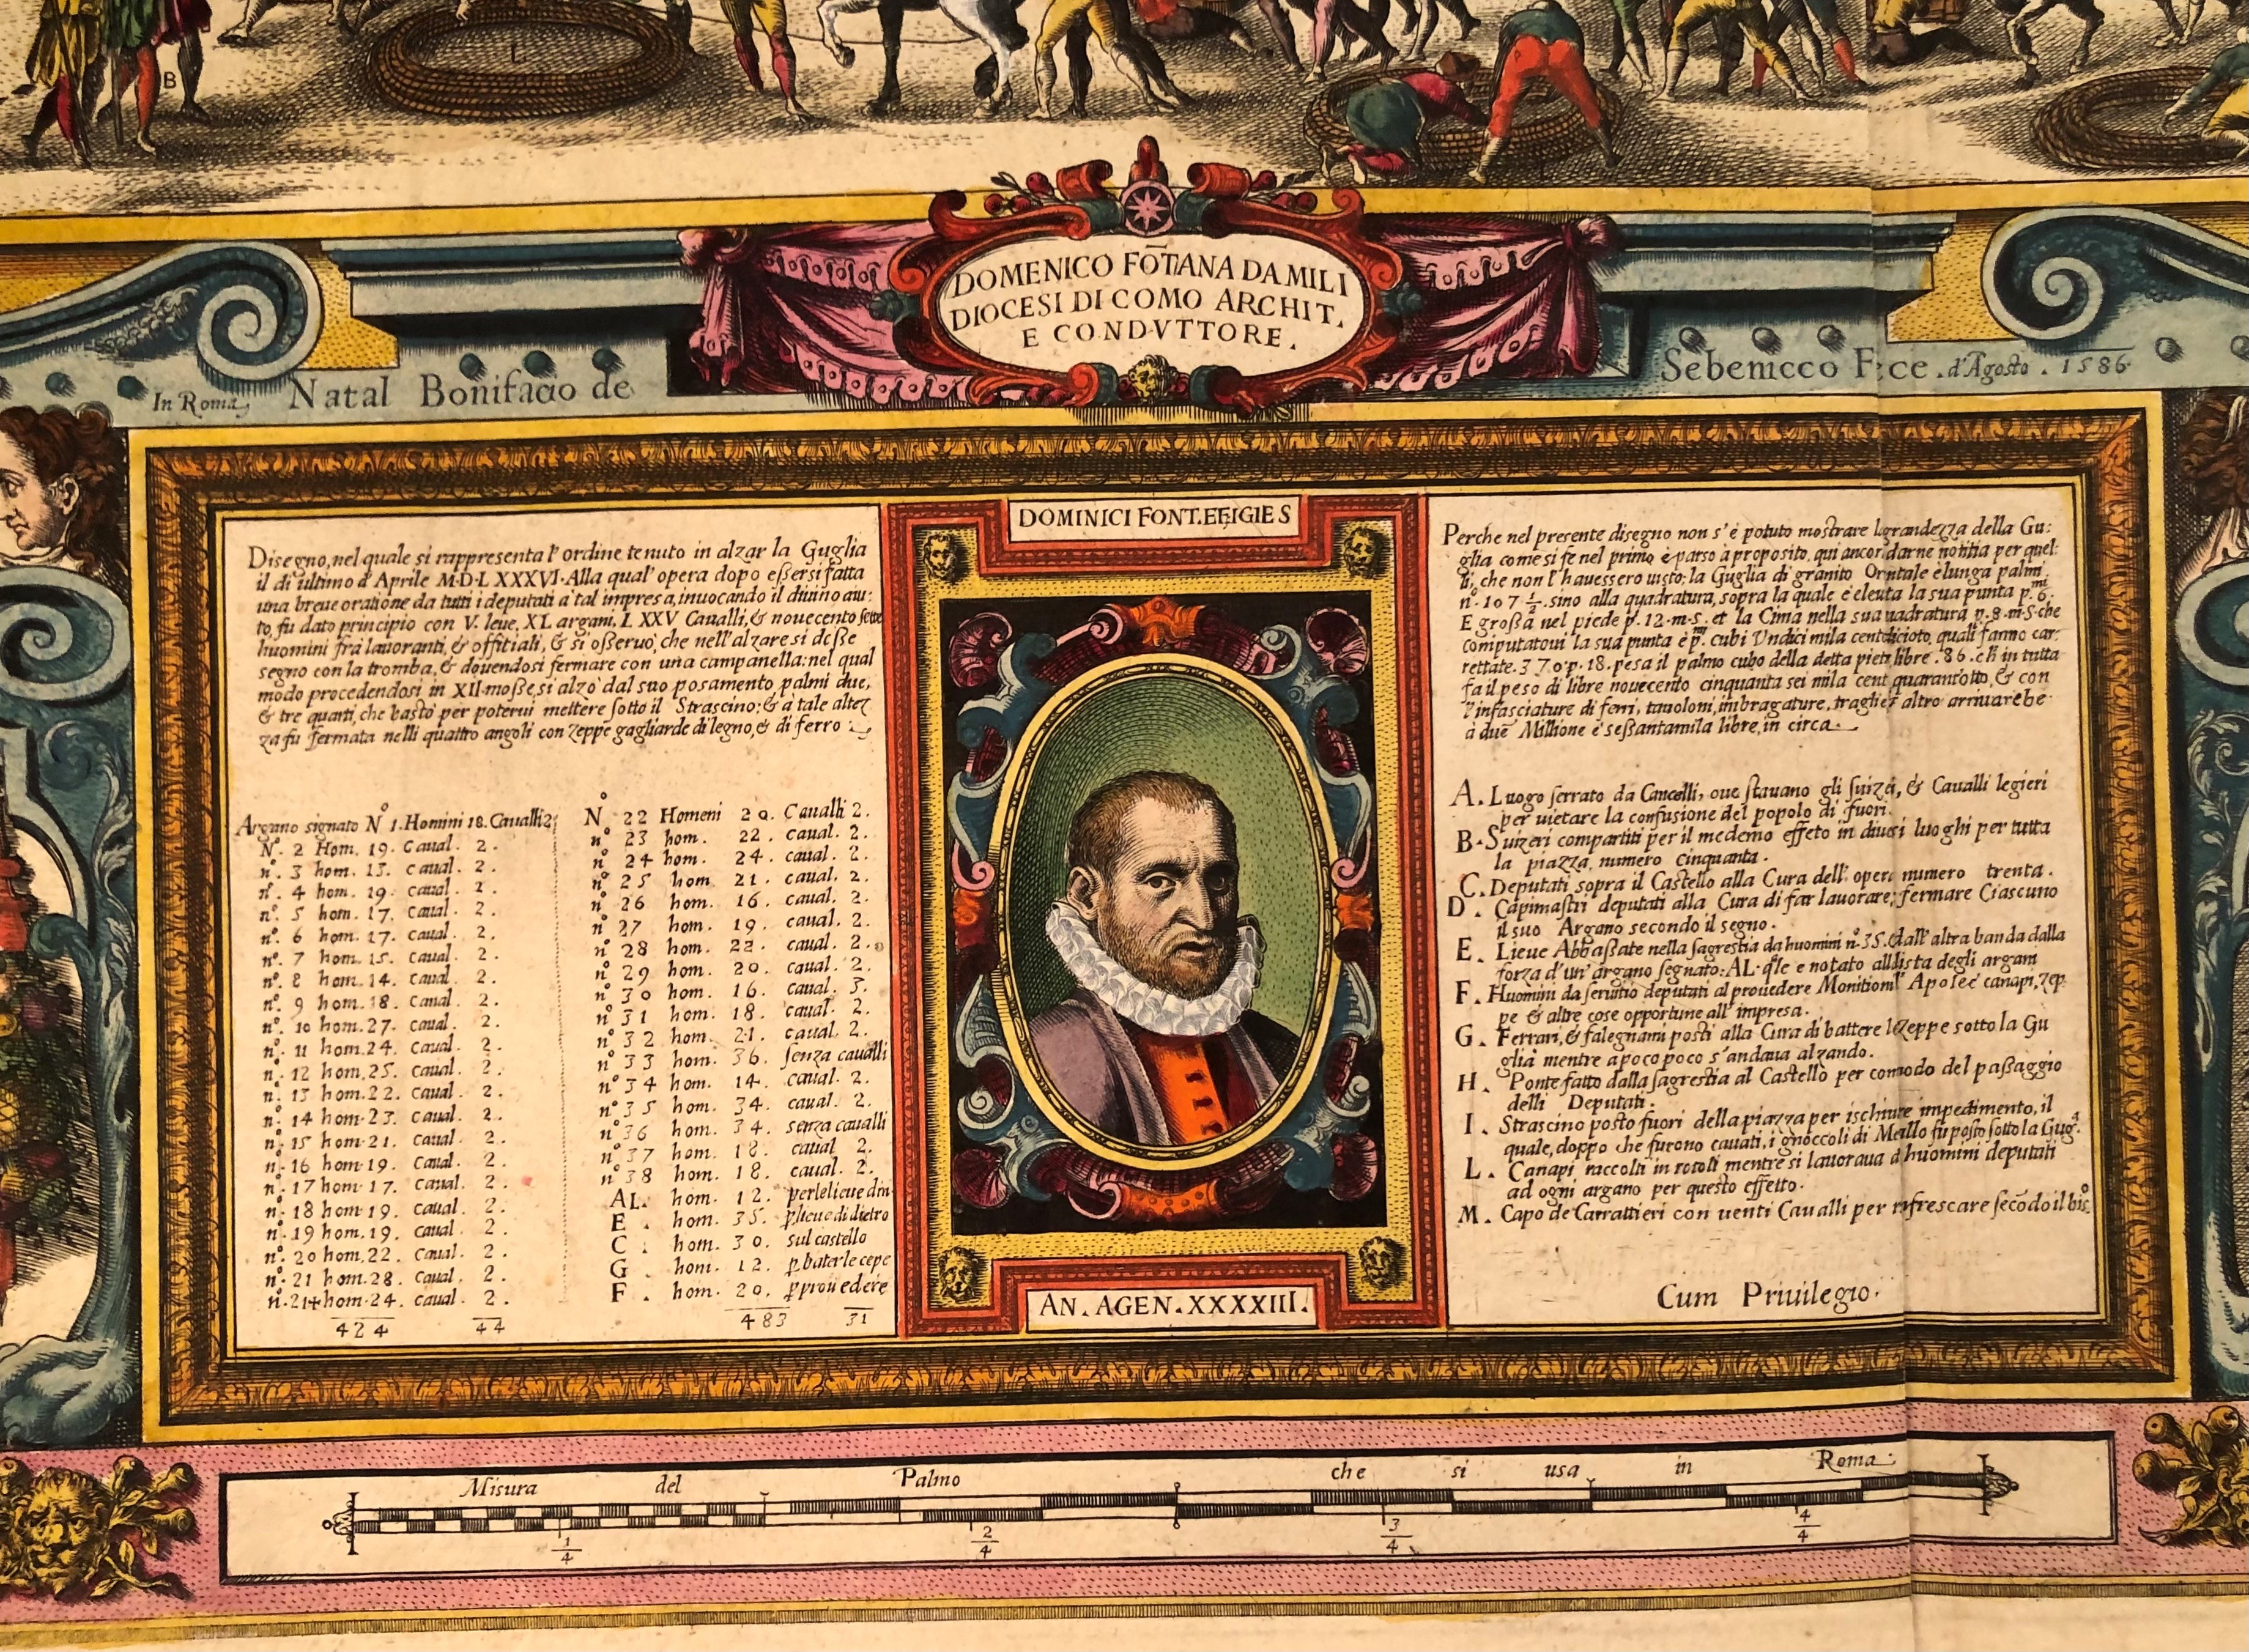 L
B
DOMENICO FŌTANA DA MILI
DIOCESI DI COMO ARCHIT.
E CONDVTTORE.
In Roma, Natal Bonifacio de
Sebenicco Fece. d'Agosto. 1586.
DOMINICI FONT. EFFIGIES
Disegno, nel quale si rappresenta l'ordine tenuto in alzar la Guglia
il di ultimo d'Aprile M·D·LXXXVI· Alla qual' opera dopo eßersi fatta
una breue oratione da tutti i deputati a tal impresa, inuocando il diuino aiu:
to, fu dato principio con V. leue, XL argani, LXXV Caualli, & nouecento sette
huomini frà lauoranti, & offitiali, & si oßeruò, che nell'alzare si deße
segno con la tromba, & douendosi fermare con una campanella: nel qual
modo procedendosi in XII moße, si alzò dal suo posamento palmi due,
& tre quarti, che bastò per poterui mettere sotto il Strascino: & a tale altez
za fu fermata nelli quattro angoli con zeppe gagliarde di legno, & di ferro
Argano signato N° 1. Homini 18. Caualli 2
N°. 2 Hom. 19. Caual. 2.
n°. 3 hom. 13. caual. 2.
n°. 4 hom. 19. caual. 2.
n°. 5 hom. 17. caual. 2.
n°. 6 hom. 17. caual. 2.
n°. 7 hom. 15. caual. 2.
n°. 8 hom. 14. caual. 2.
n°. 9 hom. 18. caual. 2.
n°. 10 hom. 27. caual. 2.
n°. 11 hom. 24. caual. 2.
n°. 12 hom. 25. caual. 2.
n°. 13 hom. 22. caual. 2.
n°. 14 hom. 23. caual. 2.
n°. 15 hom. 21. caual. 2.
n°. 16 hom. 19. caual. 2.
n°. 17 hom. 17. caual. 2.
n°. 18 hom. 19. caual. 2.
n°. 19 hom. 19. caual. 2.
n°. 20 hom. 22. caual. 2.
n°. 21 hom. 28. caual. 2.
n°. 21+ hom. 24. caual. 2.
424 44
N° 22 Homeni 20. Caualli 2.
n° 23 hom. 22. caual. 2.
n° 24 hom. 24. caual. 2.
n° 25 hom 21. caual. 2.
n° 26 hom. 16. caual. 2.
n° 27 hom. 19. caual. 2.
n° 28 hom. 22. caual. 2.
n° 29 hom. 20. caual. 2.
n° 30 hom. 16. caual. 3.
n° 31 hom. 18. caual. 2.
n° 32 hom. 21. caual. 2.
n° 33 hom. 36. senza caualli
n° 34 hom. 14. caual. 2.
n° 35 hom. 34. caual. 2.
n° 36 hom. 34. senza caualli
n° 37 hom. 18. caual 2.
n° 38 hom. 18. caual. 2.
AL. hom. 12. per le lieue din
E. hom. 35. p lieue di dietro
C. hom. 30. sul castello
G. hom. 12. p bater le cepe
F. hom. 20. p prouedere
483 31
AN. AGEN. XXXXIII.
Perche nel presente disegno non s'è potuto mostrare la grandezza della Gu:
glia come si fe nel primo è parso à proposito, qui ancor darne notitia per quel:
li, che non l'hauessero uisto: la Guglia di granito Orientale è lunga palmi
n°. 107 ½. sino alla quadratura, sopra la quale è eleuta la sua punta p.mi 6.
E großa nel piede p. 12. m. s. et la Cima nella sua quadratura p. 8. m. s. che
computatoui la sua punta è p.mi cubi Vndici mila cento dicioto, quali fanno car:
rettate. 370. p. 18. pesa il palmo cubo della detta pietra libre. 86. ch in tutta
fa il peso di libre nouecento cinquanta sei mila cent quarant'otto, & con
l'infasciature di ferri, tauoloni, imbragature, traglie & altro arriuarebe
à due Millione è seßantamila libre, in circa.
A. Luogo serrato da Cancelli, oue stauano gli suizeri, & Caualli legieri
per uietare la confusione del popolo di fuori.
B. Suizeri compartiti per il medemo effeto in diuersi luoghi per tutta
la piazza, numero cinquanta.
C. Deputati sopra il Castello alla Cura dell' opera numero trenta.
D. Capimastri deputati alla Cura di far lauorare, fermare Ciascuno
il suo Argano secondo il segno.
E. Lieue Abbaßate nella sagrestia da huomini n° 35. & dall'altra banda dalla
forza d'un' argano segnato: AL. q̃le e notato alla lista degli argani
F. Huomini da seruitio deputati al prouedere Monitioni canapi, zep
pe & altre cose opportune all' impresa.
G. Ferrari, & falegnami posti alla Cura di battere le zeppe sotto la Gu
glia mentre a poco poco s'andaua alzando.
H. Ponte fatto dalla sagrestia al Castello per comodo del paßaggio
delli Deputati.
I. Strascino posto fuori della piazza per ischiuire impedimento, il
quale, doppo che furono cauati, i gnoccoli di Metallo fu posto sotto la Gug.a
L. Canapi raccolti in rotoli mentre si lauoraua da huomini deputati
ad ogni argano per questo effetto.
M. Capo de Carrattieri con uenti Caualli per rifrescare secōdo il bis.o
Cum Priuilegio.
Misura del Palmo che si usa in Roma
1/4 2/4 3/4 4/4